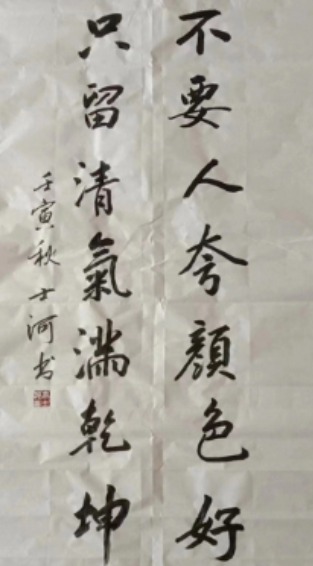 不要人夸顏色好
只留清氣滿乾坤
壬寅秋 士河书